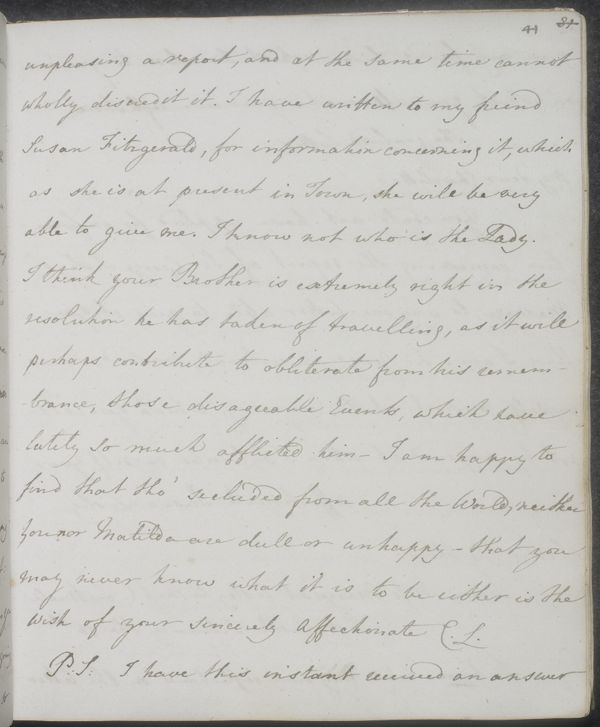 41 81
unpleasing a report, and at the same time cannot
wholly discredit it. I have written to my freind
Susan Fitzgerald, for information concerning it, which
as she is at present in Town, she will be very
able to give me. I know not who is the Lady.
I think your Brother is extremely right in the
resolution he has taken of travelling, as it will
perhaps contribute to obliterate from his remem-
-brance, those disagreable Events, which have
lately so much afflicted him - I am happy to
find that tho' secluded from all the World, neither
you nor Matilda are dull or unhappy - that you
may never know what it is to be either is the
wish of your sincerely Affectionate C.L.
P.S. I have this instant received an answer